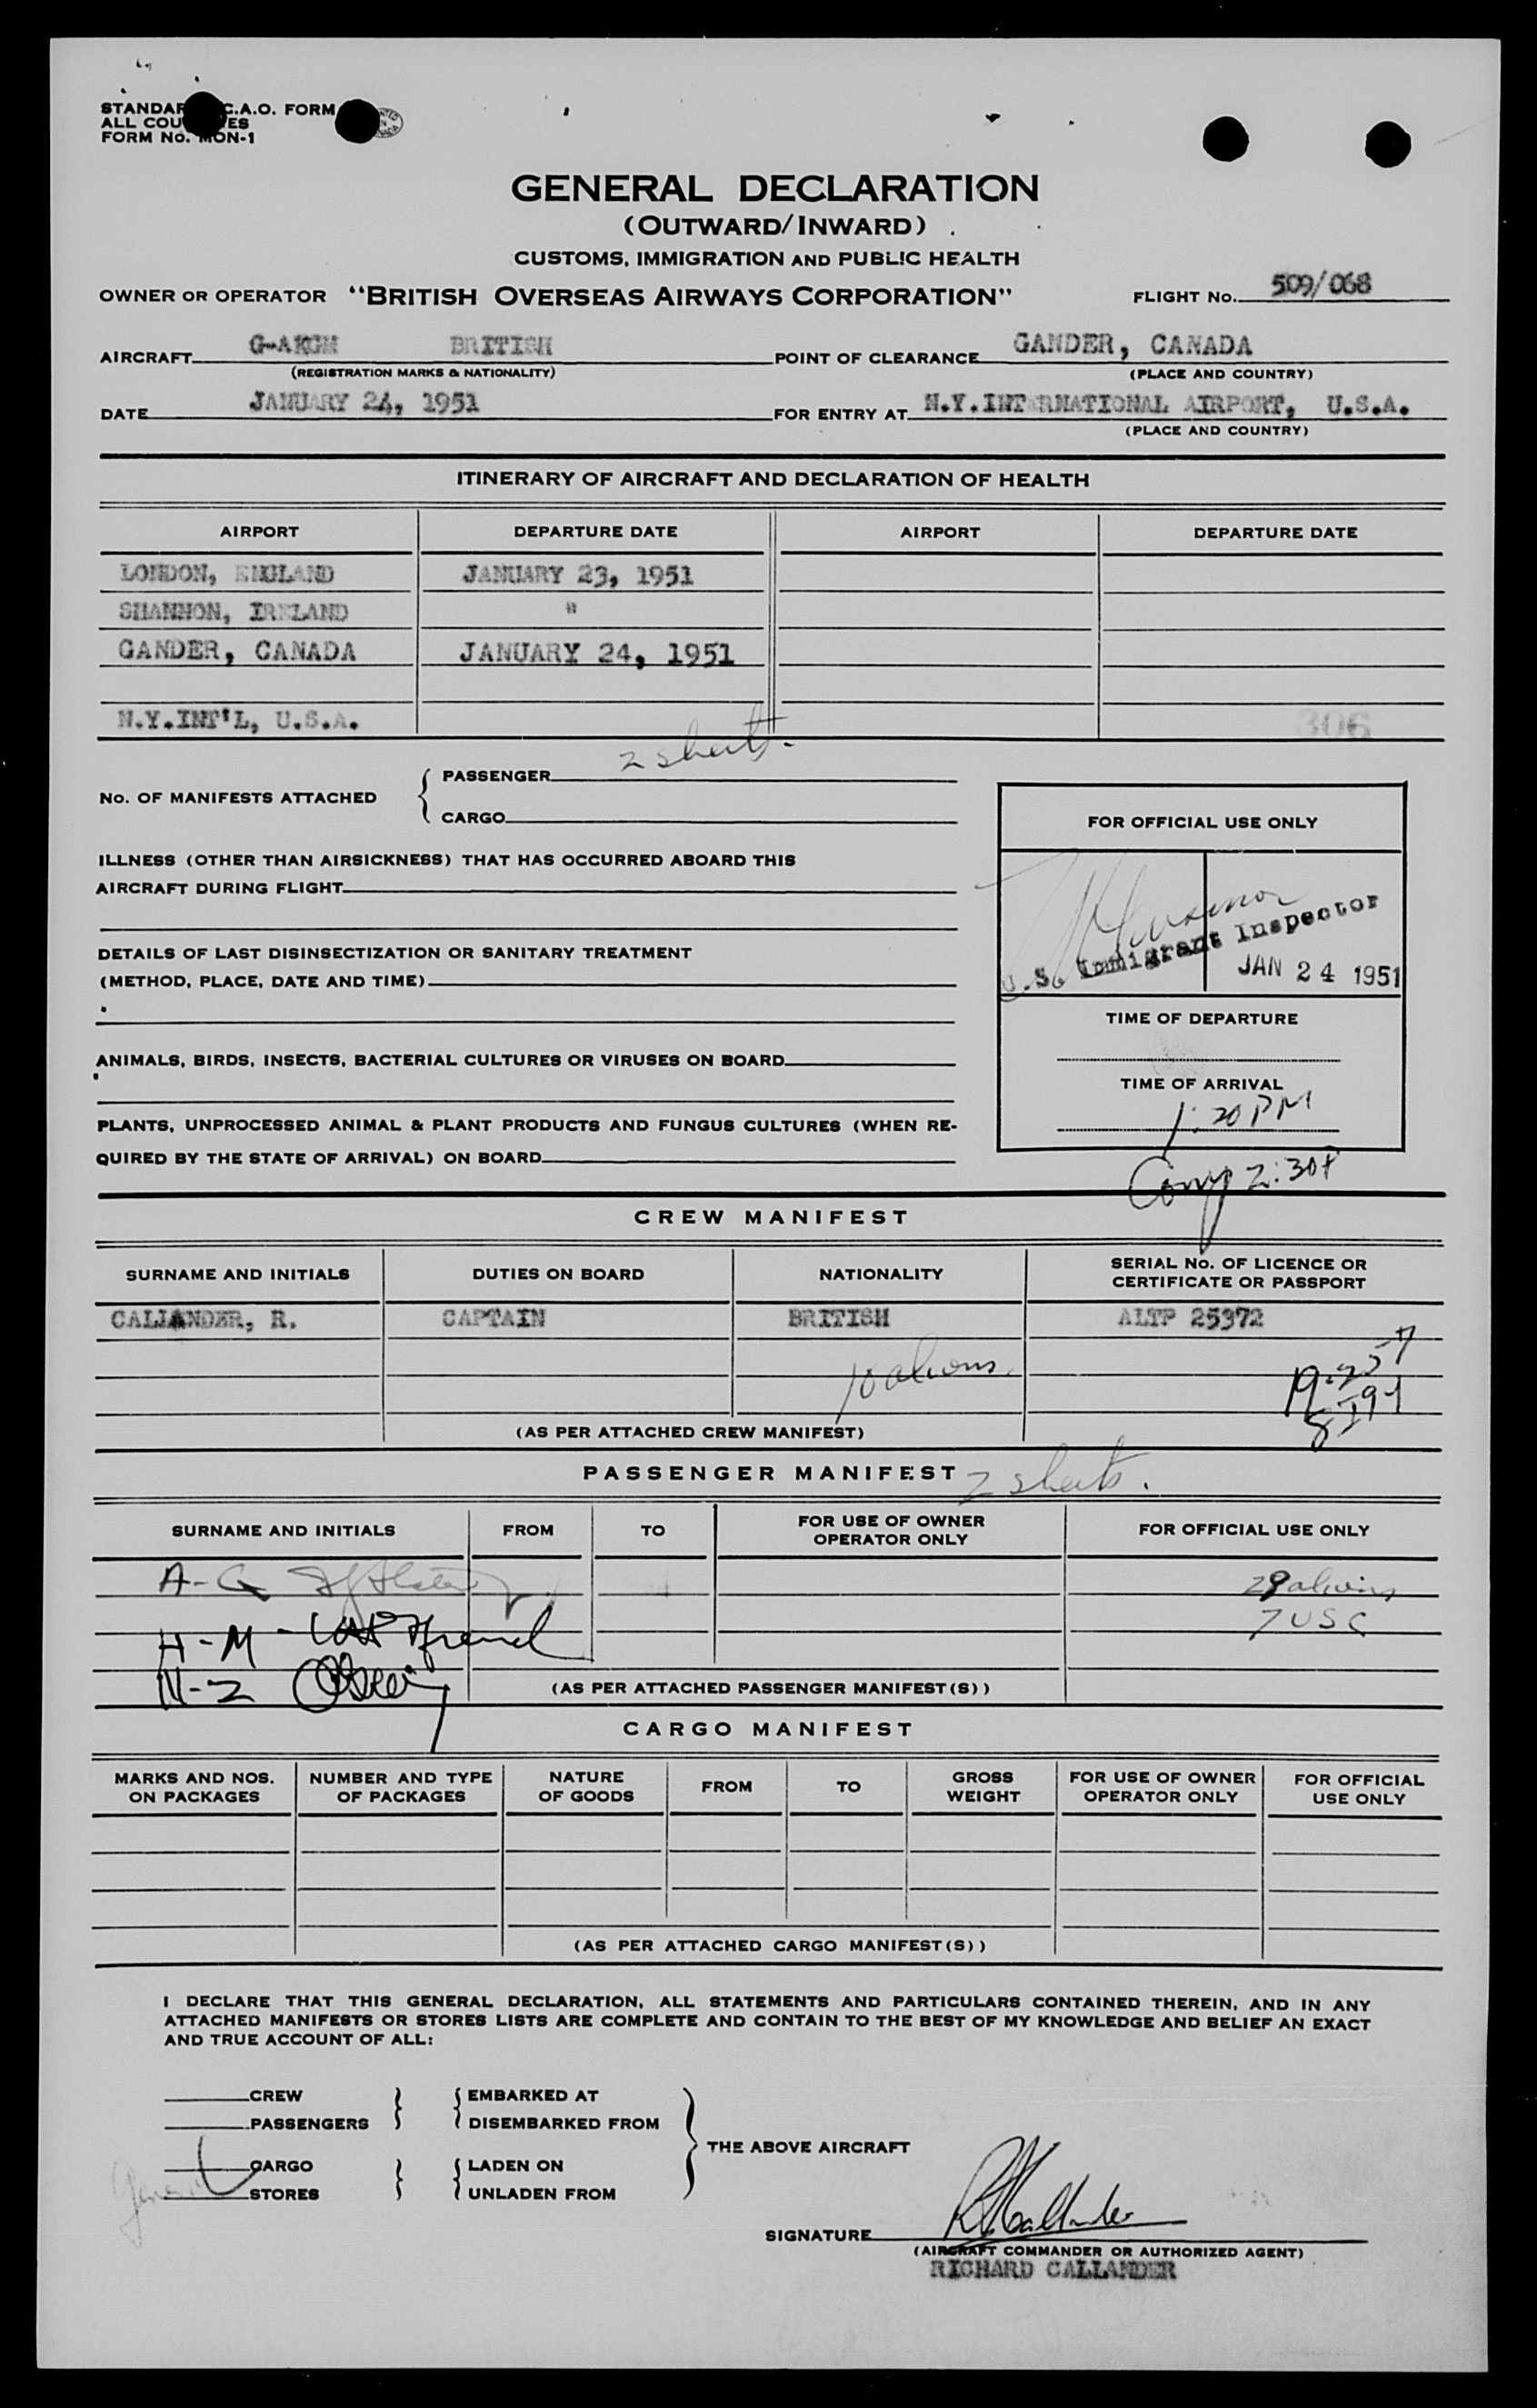 STANDAR C.A.O. FORM
ALL COU ES
FORM No. MON-1
GENERAL DECLARATION
(OUTWARD/INWARD)
CUSTOMS, IMMIGRATION AND PUBLIC HEALTH
OWNER OR OPERATOR "BRITISH OVERSEAS AIRWAYS CORPORATION" FLIGHT No. 509/068
AIRCRAFT G-AKGM BRITISH POINT OF CLEARANCE GANDER, CANADA
(REGISTRATION MARKS & NATIONALITY) (PLACE AND COUNTRY)
DATE JANUARY 24, 1951 FOR ENTRY AT N.Y.INTERNATIONAL AIRPORT, U.S.A.
(PLACE AND COUNTRY)
ITINERARY OF AIRCRAFT AND DECLARATION OF HEALTH
AIRPORT DEPARTURE DATE AIRPORT DEPARTURE DATE
LONDON, ENGLAND JANUARY 23, 1951
SHANNON, IRELAND "
GANDER, CANADA JANUARY 24, 1951
N.Y.INT'L, U.S.A. 306
2 sheets.
No. OF MANIFESTS ATTACHED { PASSENGER
CARGO
FOR OFFICIAL USE ONLY
ILLNESS (OTHER THAN AIRSICKNESS) THAT HAS OCCURRED ABOARD THIS
AIRCRAFT DURING FLIGHT
U.S. Immigrant Inspector
JAN 24 1951
DETAILS OF LAST DISINSECTIZATION OR SANITARY TREATMENT
(METHOD, PLACE, DATE AND TIME)
TIME OF DEPARTURE
ANIMALS, BIRDS, INSECTS, BACTERIAL CULTURES OR VIRUSES ON BOARD
TIME OF ARRIVAL
1:20 PM
PLANTS, UNPROCESSED ANIMAL & PLANT PRODUCTS AND FUNGUS CULTURES (WHEN RE-
QUIRED BY THE STATE OF ARRIVAL) ON BOARD
Comp 2:30P
CREW MANIFEST
SURNAME AND INITIALS DUTIES ON BOARD NATIONALITY SERIAL No. OF LICENCE OR
CERTIFICATE OR PASSPORT
CALLANDER, R. CAPTAIN BRITISH ALTP 25372
10 aliens.
(AS PER ATTACHED CREW MANIFEST)
PASSENGER MANIFEST 2 sheets.
SURNAME AND INITIALS FROM TO FOR USE OF OWNER
OPERATOR ONLY FOR OFFICIAL USE ONLY
A-G 29 aliens
H-M - 7 USC
N-Z
(AS PER ATTACHED PASSENGER MANIFEST(S))
CARGO MANIFEST
MARKS AND NOS.
ON PACKAGES NUMBER AND TYPE
OF PACKAGES NATURE
OF GOODS FROM TO GROSS
WEIGHT FOR USE OF OWNER
OPERATOR ONLY FOR OFFICIAL
USE ONLY
(AS PER ATTACHED CARGO MANIFEST(S))
I DECLARE THAT THIS GENERAL DECLARATION, ALL STATEMENTS AND PARTICULARS CONTAINED THEREIN, AND IN ANY
ATTACHED MANIFESTS OR STORES LISTS ARE COMPLETE AND CONTAIN TO THE BEST OF MY KNOWLEDGE AND BELIEF AN EXACT
AND TRUE ACCOUNT OF ALL:
CREW } { EMBARKED AT
PASSENGERS DISEMBARKED FROM
THE ABOVE AIRCRAFT
CARGO } { LADEN ON
STORES UNLADEN FROM
SIGNATURE R Callander
(AIRCRAFT COMMANDER OR AUTHORIZED AGENT)
RICHARD CALLANDER